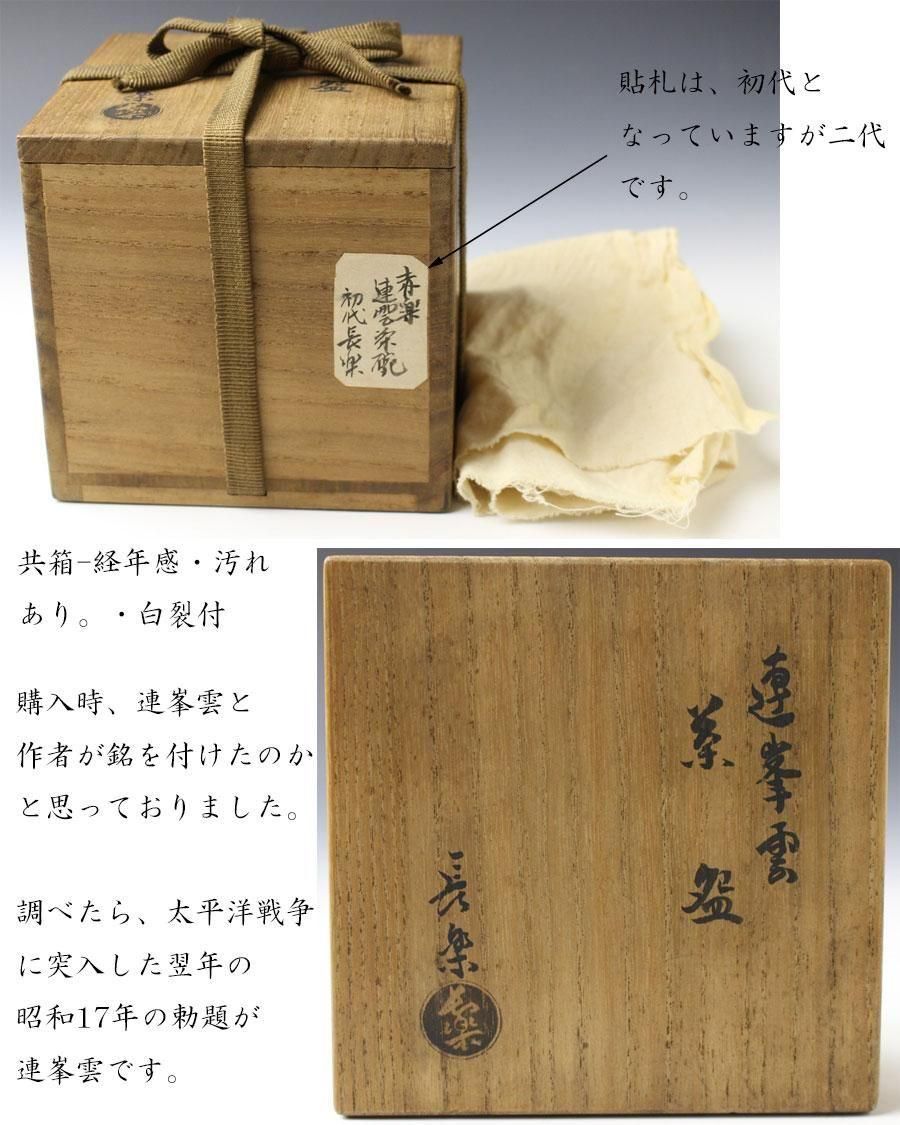 貼札は、初代と
なっていますが二代
です。
赤楽
連雲茶碗
初代長楽
共箱-経年感・汚れ
あり。・白裂付
購入時、連峯雲と
作者が銘を付けたのか
と思っておりました。
調べたら、太平洋戦争
に突入した翌年の
昭和17年の勅題が
連峯雲です。
連峯雲
茶盌
長楽
長樂